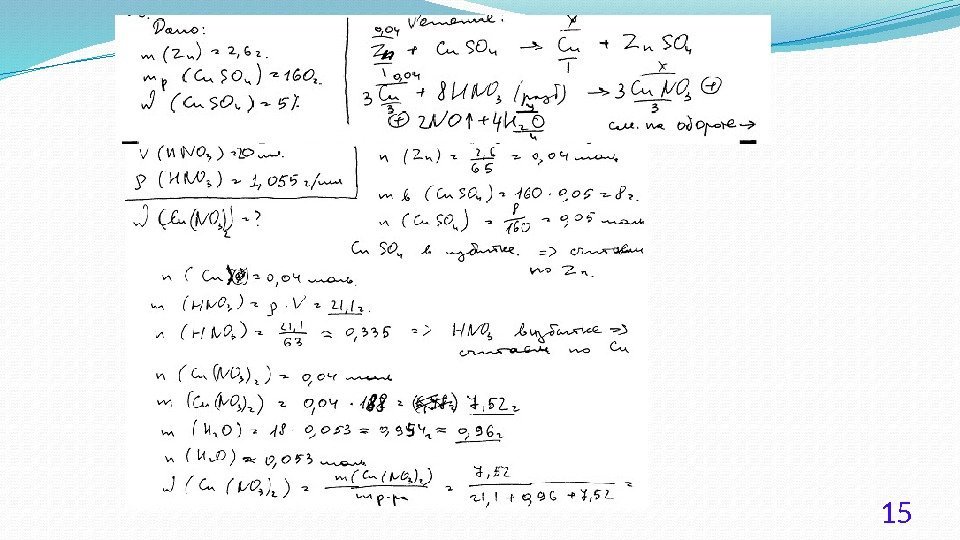 Дано:
m (Zn) = 2,6 г.
mр (CuSO4) = 160 г.
W (CuSO4) = 5%
Решение.
0,04 x
Zn + CuSO4 → Cu + ZnSO4
1 1
0,04 x
3Cu + 8HNO3 (разб) → 3CuNO3 ⊕
3 3
y
⊕ 2NO↑ + 4H2O
4
см. на обороте →
V (HNO3) = 20 мл.
ρ (HNO3) = 1,055 г/мл
W (Cu(NO3)2) = ?
n (Zn) = 2,6/65 = 0,04 моль
m в (CuSO4) = 160 · 0,05 = 8 г.
n (CuSO4) = 8/160 = 0,05 моль
CuSO4 в избытке. => считаем
по Zn.
n (Cu) = 0,04 моль.
m (HNO3) = ρ · V = 21,1 г.
n (HNO3) = 21,1/63 ≈ 0,335 => HNO3 в избытке =>
считаем по Cu
n (Cu(NO3)2) = 0,04 моль
m (Cu(NO3)2) = 0,04 · 188 = 7,52 г
m (H2O) = 18 · 0,053 = 0,954 г ≈ 0,96 г
n (H2O) ≈ 0,053 моль
W (Cu(NO3)2) = m(Cu(NO3)2)/mр-ра = 7,52/21,1 + 0,96 + 7,52 =
15